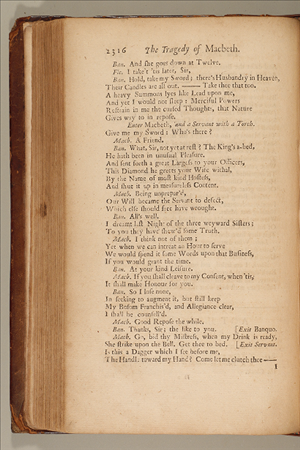 2316 The Tragedy of Macbeth.
Ban. And she goes down at Twelve.
Fle. I take't 'tis later, Sir.
Ban. Hold, take my Sword: there's Husbandry in Heaven,
Their Candles are all out. —— Take thee that too.
A heavy Summons lyes like Lead upon me,
And yet I would not sleep: Merciful Powers
Restrain in me the cursed Thoughts, that Nature
Gives way to in repose.
Enter Macbeth, and a Servant with a Torch.
Give me my Sword: Who's there?
Macb. A Friend.
Ban. What, Sir, not yet at rest? The King's a-bed.
He hath been in unusual Pleasure,
And sent forth a great Largess to your Officers,
This Diamond he greets your Wife withal,
By the Name of most kind Hostess,
And shut it up in measureless Content.
Macb. Being unprepar'd,
Our Will became the Servant to defect,
Which else should free have wrought.
Ban. All's well.
I dreamt last Night of the three weyward Sisters;
To you they have shew'd some Truth.
Macb. I think not of them;
Yet when we can intreat an Hour to serve
We would spend it some Words upon that Business,
If you would grant the time.
Ban. At your kind Leisure.
Macb. If you shall cleave to my Consent, when 'tis,
It shall make Honour for you.
Ban. So I lose none,
In seeking to augment it, but still keep
My Bosom Franchis'd, and Allegiance clear,
I shall be counsell'd.
Macb. Good Repose the while.
Ban. Thanks, Sir; the like to you. [Exit Banquo.
Macb. Go, bid thy Mistress, when my Drink is ready,
She strike upon the Bell. Get thee to bed. [Exit Servant.
Is this a Dagger which I see before me,
The Handle toward my Hand? Come let me clutch thee ——
I